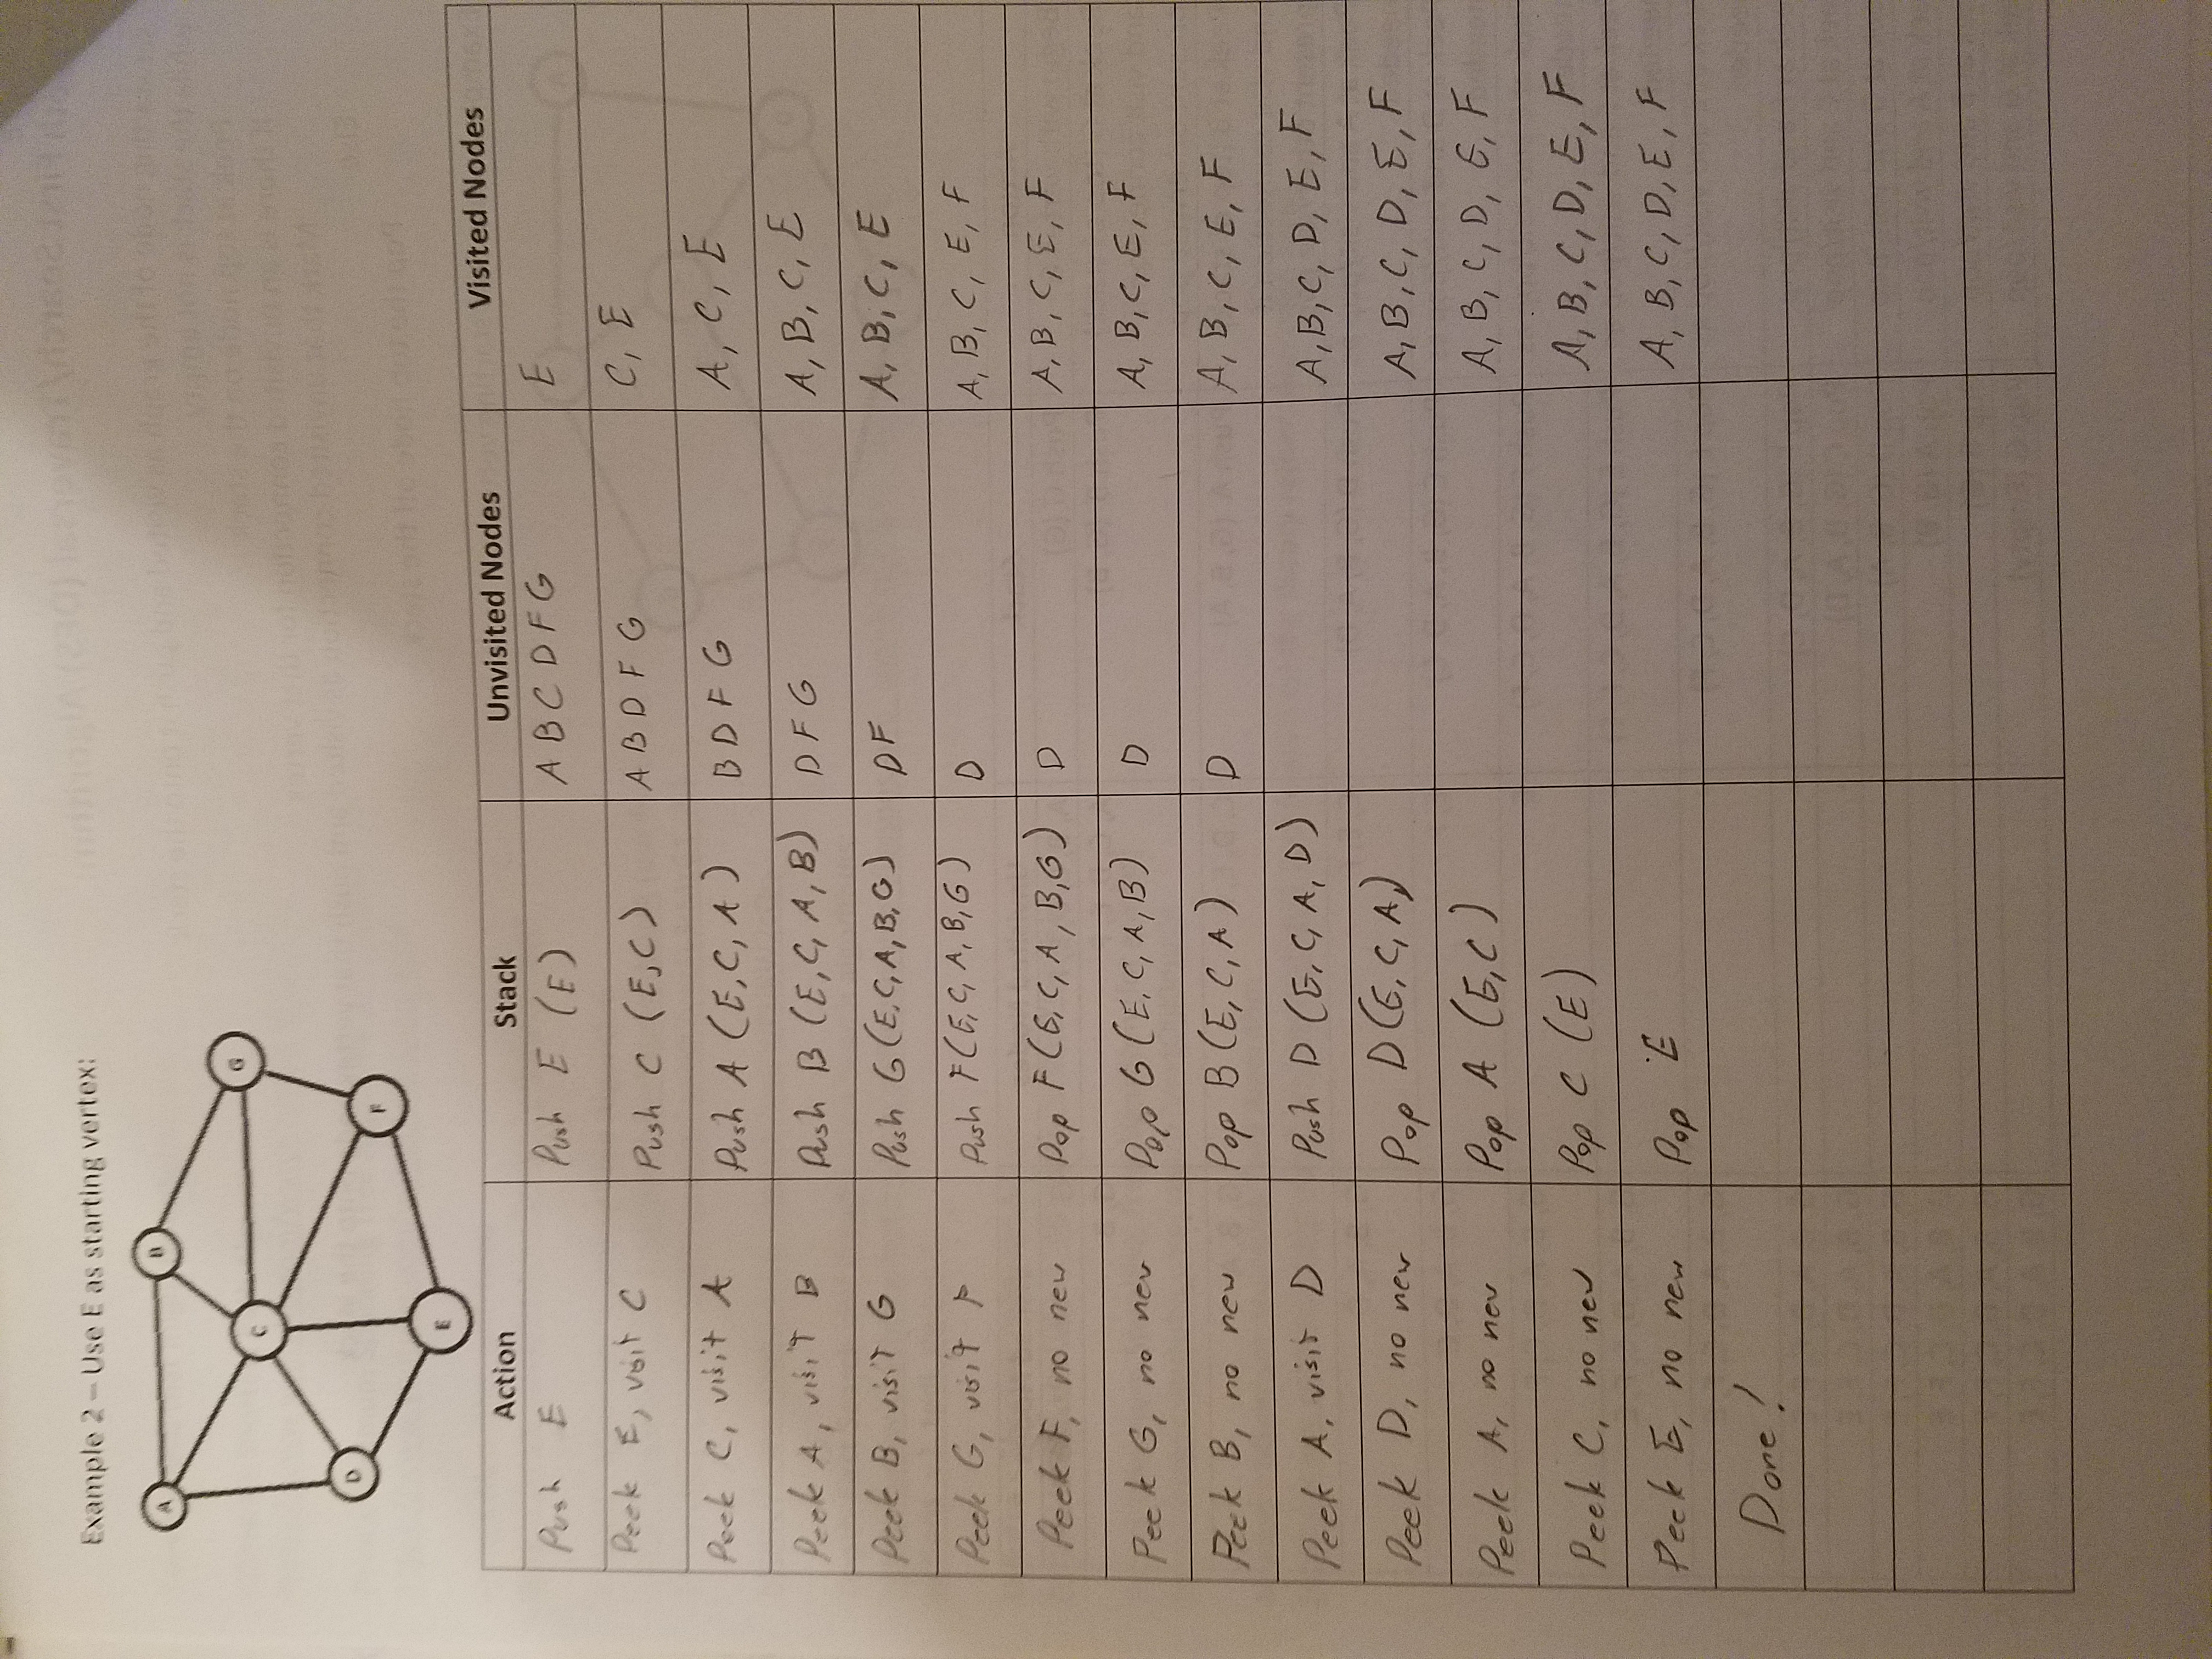 Example 2 – Use E as starting vertex:
A
B
G
C
D
F
E
Action Stack Unvisited Nodes Visited Nodes
Push E Push E (E) A B C D F G E
Peek E, visit C Push C (E,C) A B D F G C, E
Peek C, visit A Push A (E,C, A) B D F G A, C, E
Peek A, visit B Push B (E,C, A, B) D F G A, B, C, E
Peek B, visit G Push G (E,C,A,B,G) D F A, B, C, E
Peek G, visit F Push F (E, C, A, B, G) D A, B, C, E, F
Peek F, no new Pop F (E, C, A, B, G) D A, B, C, E, F
Peek G, no new Pop G (E, C, A, B) D A, B, C, E, F
Peek B, no new Pop B (E, C, A) D A, B, C, E, F
Peek A, visit D Push D (E, C, A, D) A, B, C, D, E, F
Peek D, no new Pop D (E, C, A,) A, B, C, D, E, F
Peek A, no new Pop A (E,C) A, B, C, D, E, F
Peek C, no new Pop C (E) A, B, C, D, E, F
Peek E, no new Pop E A, B, C, D, E, F
Done!